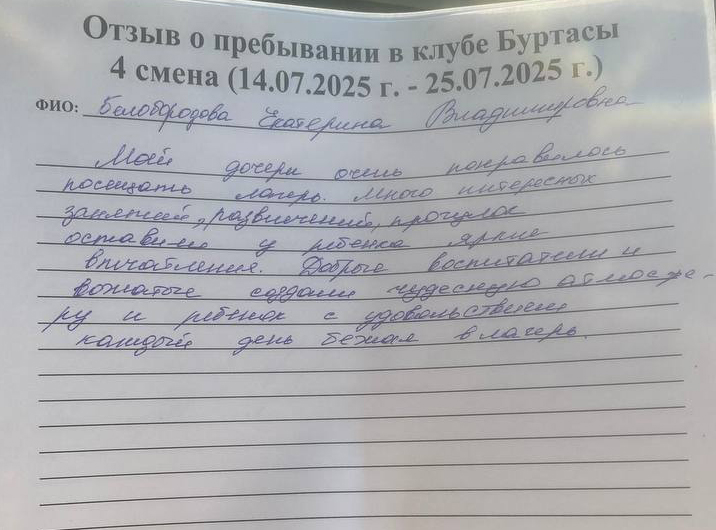 Отзыв о пребывании в клубе Буртасы
4 смена (14.07.2025 г. - 25.07.2025 г.)
ФИО: Белобородова Екатерина Владимировна
Моей дочери очень понравилось
посещать лагерь. Много интересных
занятий, развлечений, прогулок
оставили у ребенка яркие
впечатления. Добрые воспитатели и
вожатые создали чудесную атмосфе-
ру и ребенок с удовольствием
каждый день бежал в лагерь.